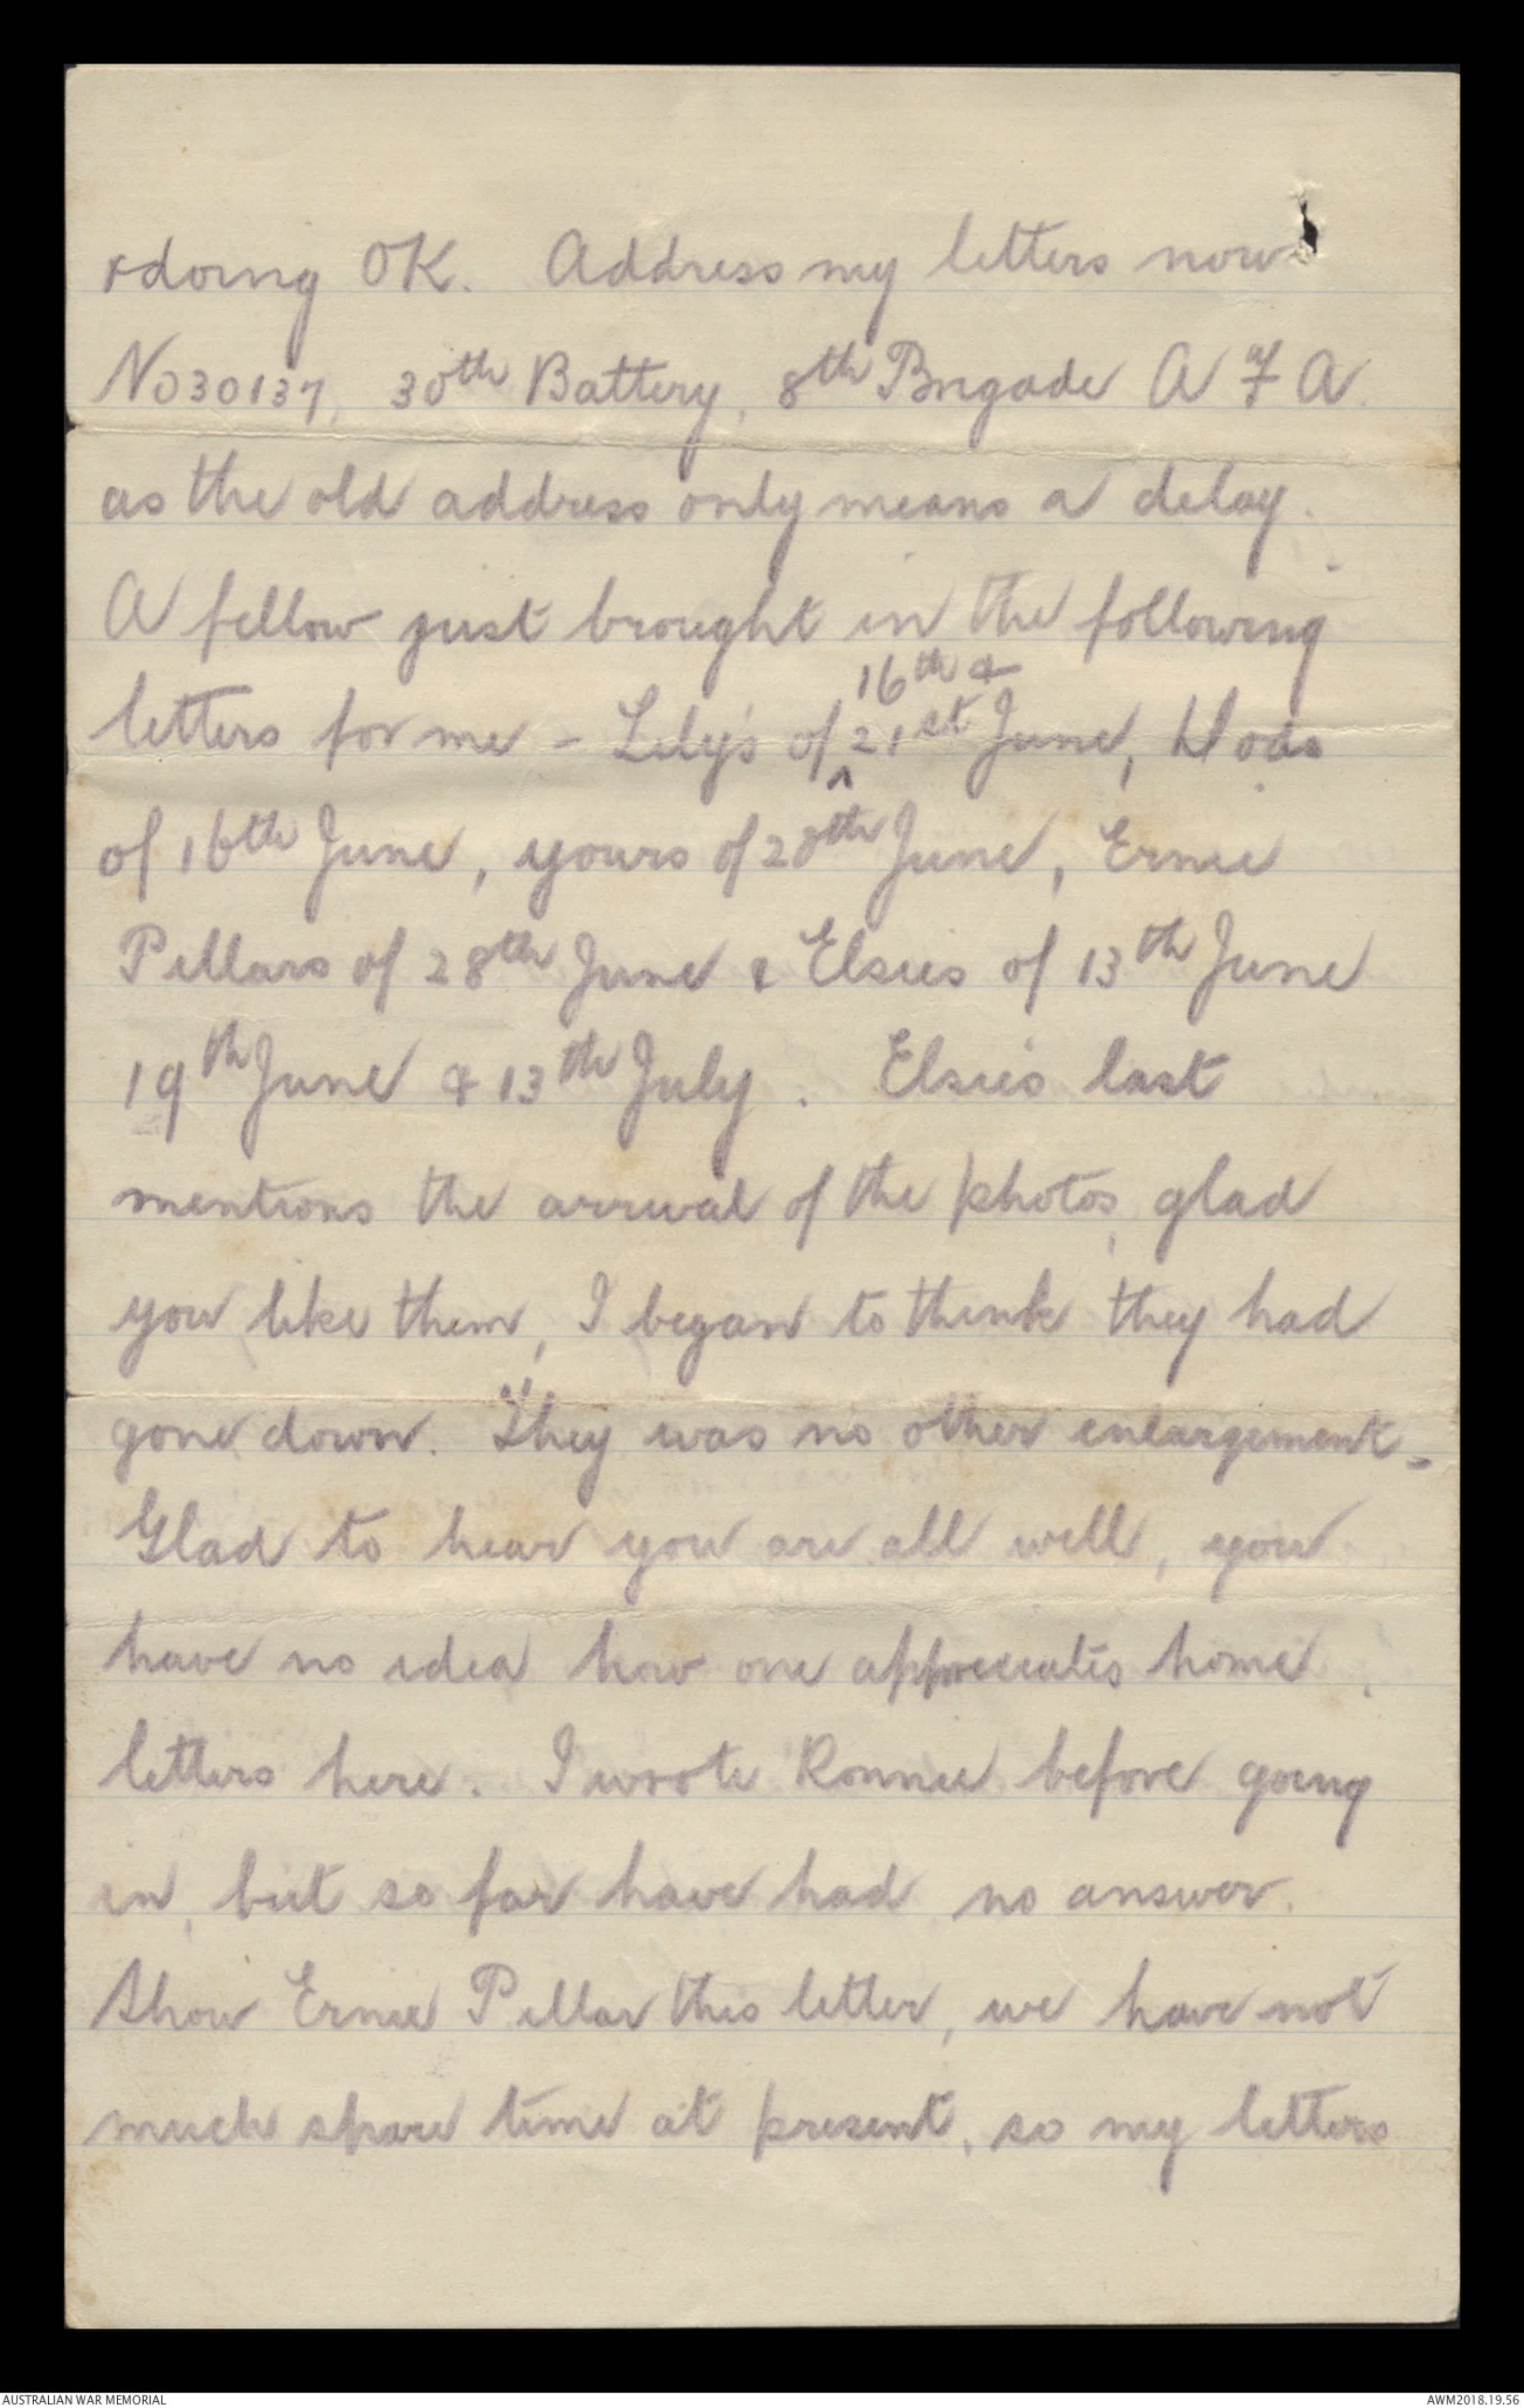 & doing OK. Address my letters now
No 30137, 30th Battery, 8th Brigade A F A.
as the old address only means a delay.
A fellow just brought in the following
16th &
letters for me - Lily's of ^ 21st June,
of 16th June, yours of 28th June, Ernie
Pillars of 28th June & Elsies of 13th June
19th June & 13th July. Elsies last
mentions the arrival of the photos, glad
you like them, I began to think they had
gone down. They was no other enlargement.
Glad to hear you are all well, you
have no idea how one appreciates home
letters here. I wrote Ronnie before going
in, but so far have had no answer.
Show Ernie Pillar this letter, we have not
much spare time at present, so my letters
AUSTRALIAN WAR MEMORIAL
AWM2018.19.56